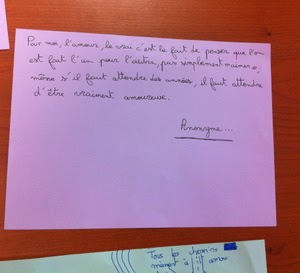 Pour moi, l'amour, le vrai c'est le fait de penser que l'on
est fait l'un pour l'autre, pas simplement m'aimer,
même s'il faut attendre des années, il faut attendre
d'être vraiment amoureux.
Anonyme...
Tous les chemins
mènent à l'amour